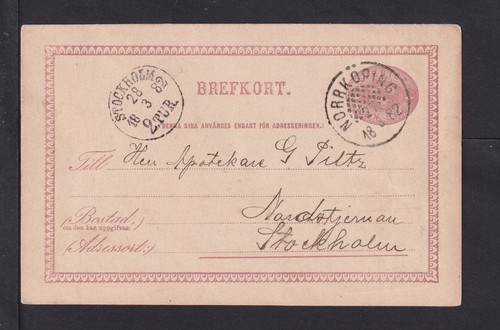 BREFKORT.
STOCKHOLM
28
3
18 82
2 TUR.
NORRKÖPING
18 82
DENNA SIDA ANVÄNDES ENDAST FÖR ADRESSERINGEN.
Till Herr Apotekare G Piltz
(Bostad.)
om den kan uppgifvas:
Nordstjernan
(Adressort:) Stockholm